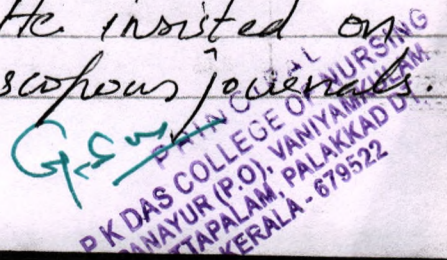 He insisted on
scopous journals.
PRINCIPAL
P K DAS COLLEGE OF NURSING
VANIYAMKULAM
(P.O),
PALAKKAD
KERALA - 679522